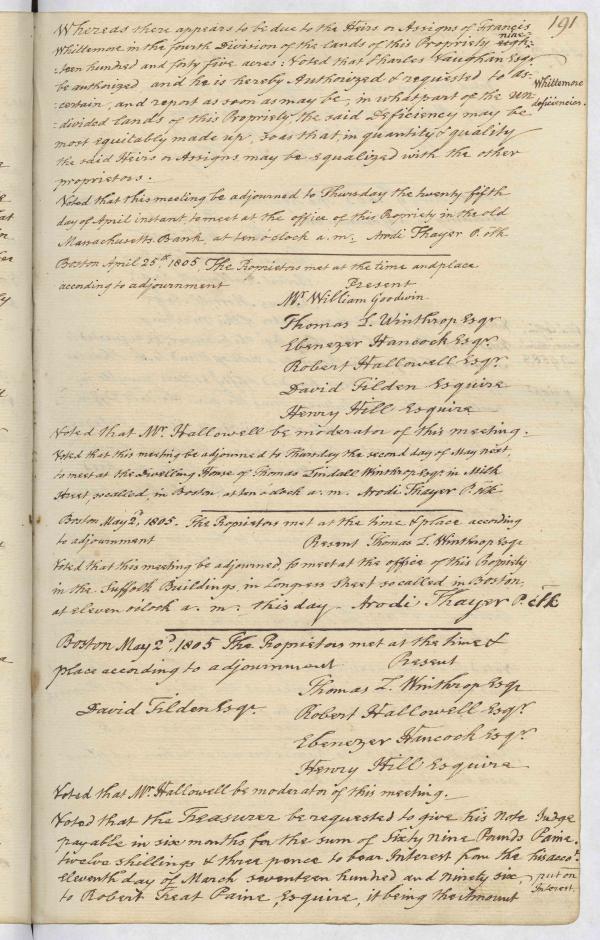 191
Whereas there appears to be due to the Heirs or Assigns of Francis
Whittemore in the fourth Division of the lands of this Propriety eigh- nine-
-teen hundred and forty five acres: Voted that Charles Vaughan Esqr.
be authorized, and he is hereby Authorized & requested to as-
certain, and report as soon as may be, in what part of the un-
divided lands of this Propriety, the said Deficiency may be
most equitably made up, so as that in quantity & quality
the said Heirs or Assigns may be equalized with the other
proprietors.
Whittemore
deficiencies.
Voted that this meeting be adjourned to Thursday the twenty fifth
day of April instant, to meet at the office of this Propriety in the old
Massachusetts Bank, at ten o'clock a. m. Arodi Thayer P. Clk
Boston April 25th 1805, The Proprietors met at the time and place
according to adjournment
Present
Mr. William Goodwin
Thomas L. Winthrop Esqr
Ebenezer Hancock Esqr.
Robert Hallowell Esqr.
David Tilden Esquire
Henry Hill Esquire
Voted that Mr. Hallowell be moderator of this meeting.
Voted that this meeting be adjourned to Thursday the second day of May next,
to meet at the Dwelling House of Thomas Lindall Winthrop Esqr. in Milk
Street, so called, in Boston, at ten o'clock a. m. Arodi Thayer P. Clk
Boston May 2d, 1805. The Proprietors met at the time & place according
to adjournment Present Thomas L. Winthrop Esqr
Voted that this meeting be adjourned, to meet at the office of this Propriety
in the Suffolk Buildings, in Congress Street so called in Boston,
at eleven o'clock a. m. this day - Arodi Thayer P. Clk
Boston May 2d, 1805 The Proprietors met at the time &
place according to adjournment Present
Thomas L. Winthrop Esqr
David Tilden Esqr. Robert Hallowell Esqr.
Ebenezer Hancock Esqr.
Henry Hill Esquire
Voted that Mr. Hallowell be moderator of this meeting.
Voted that the Treasurer be requested to give his Note
payable in six months for the sum of Sixty nine Pounds
twelve shillings & three pence to bear Interest from the
eleventh day of March seventeen hundred and ninety six,
to Robert Treat Paine, Esquire, it being the amount
Judge
Paine.
his accot.
put on
Interest.